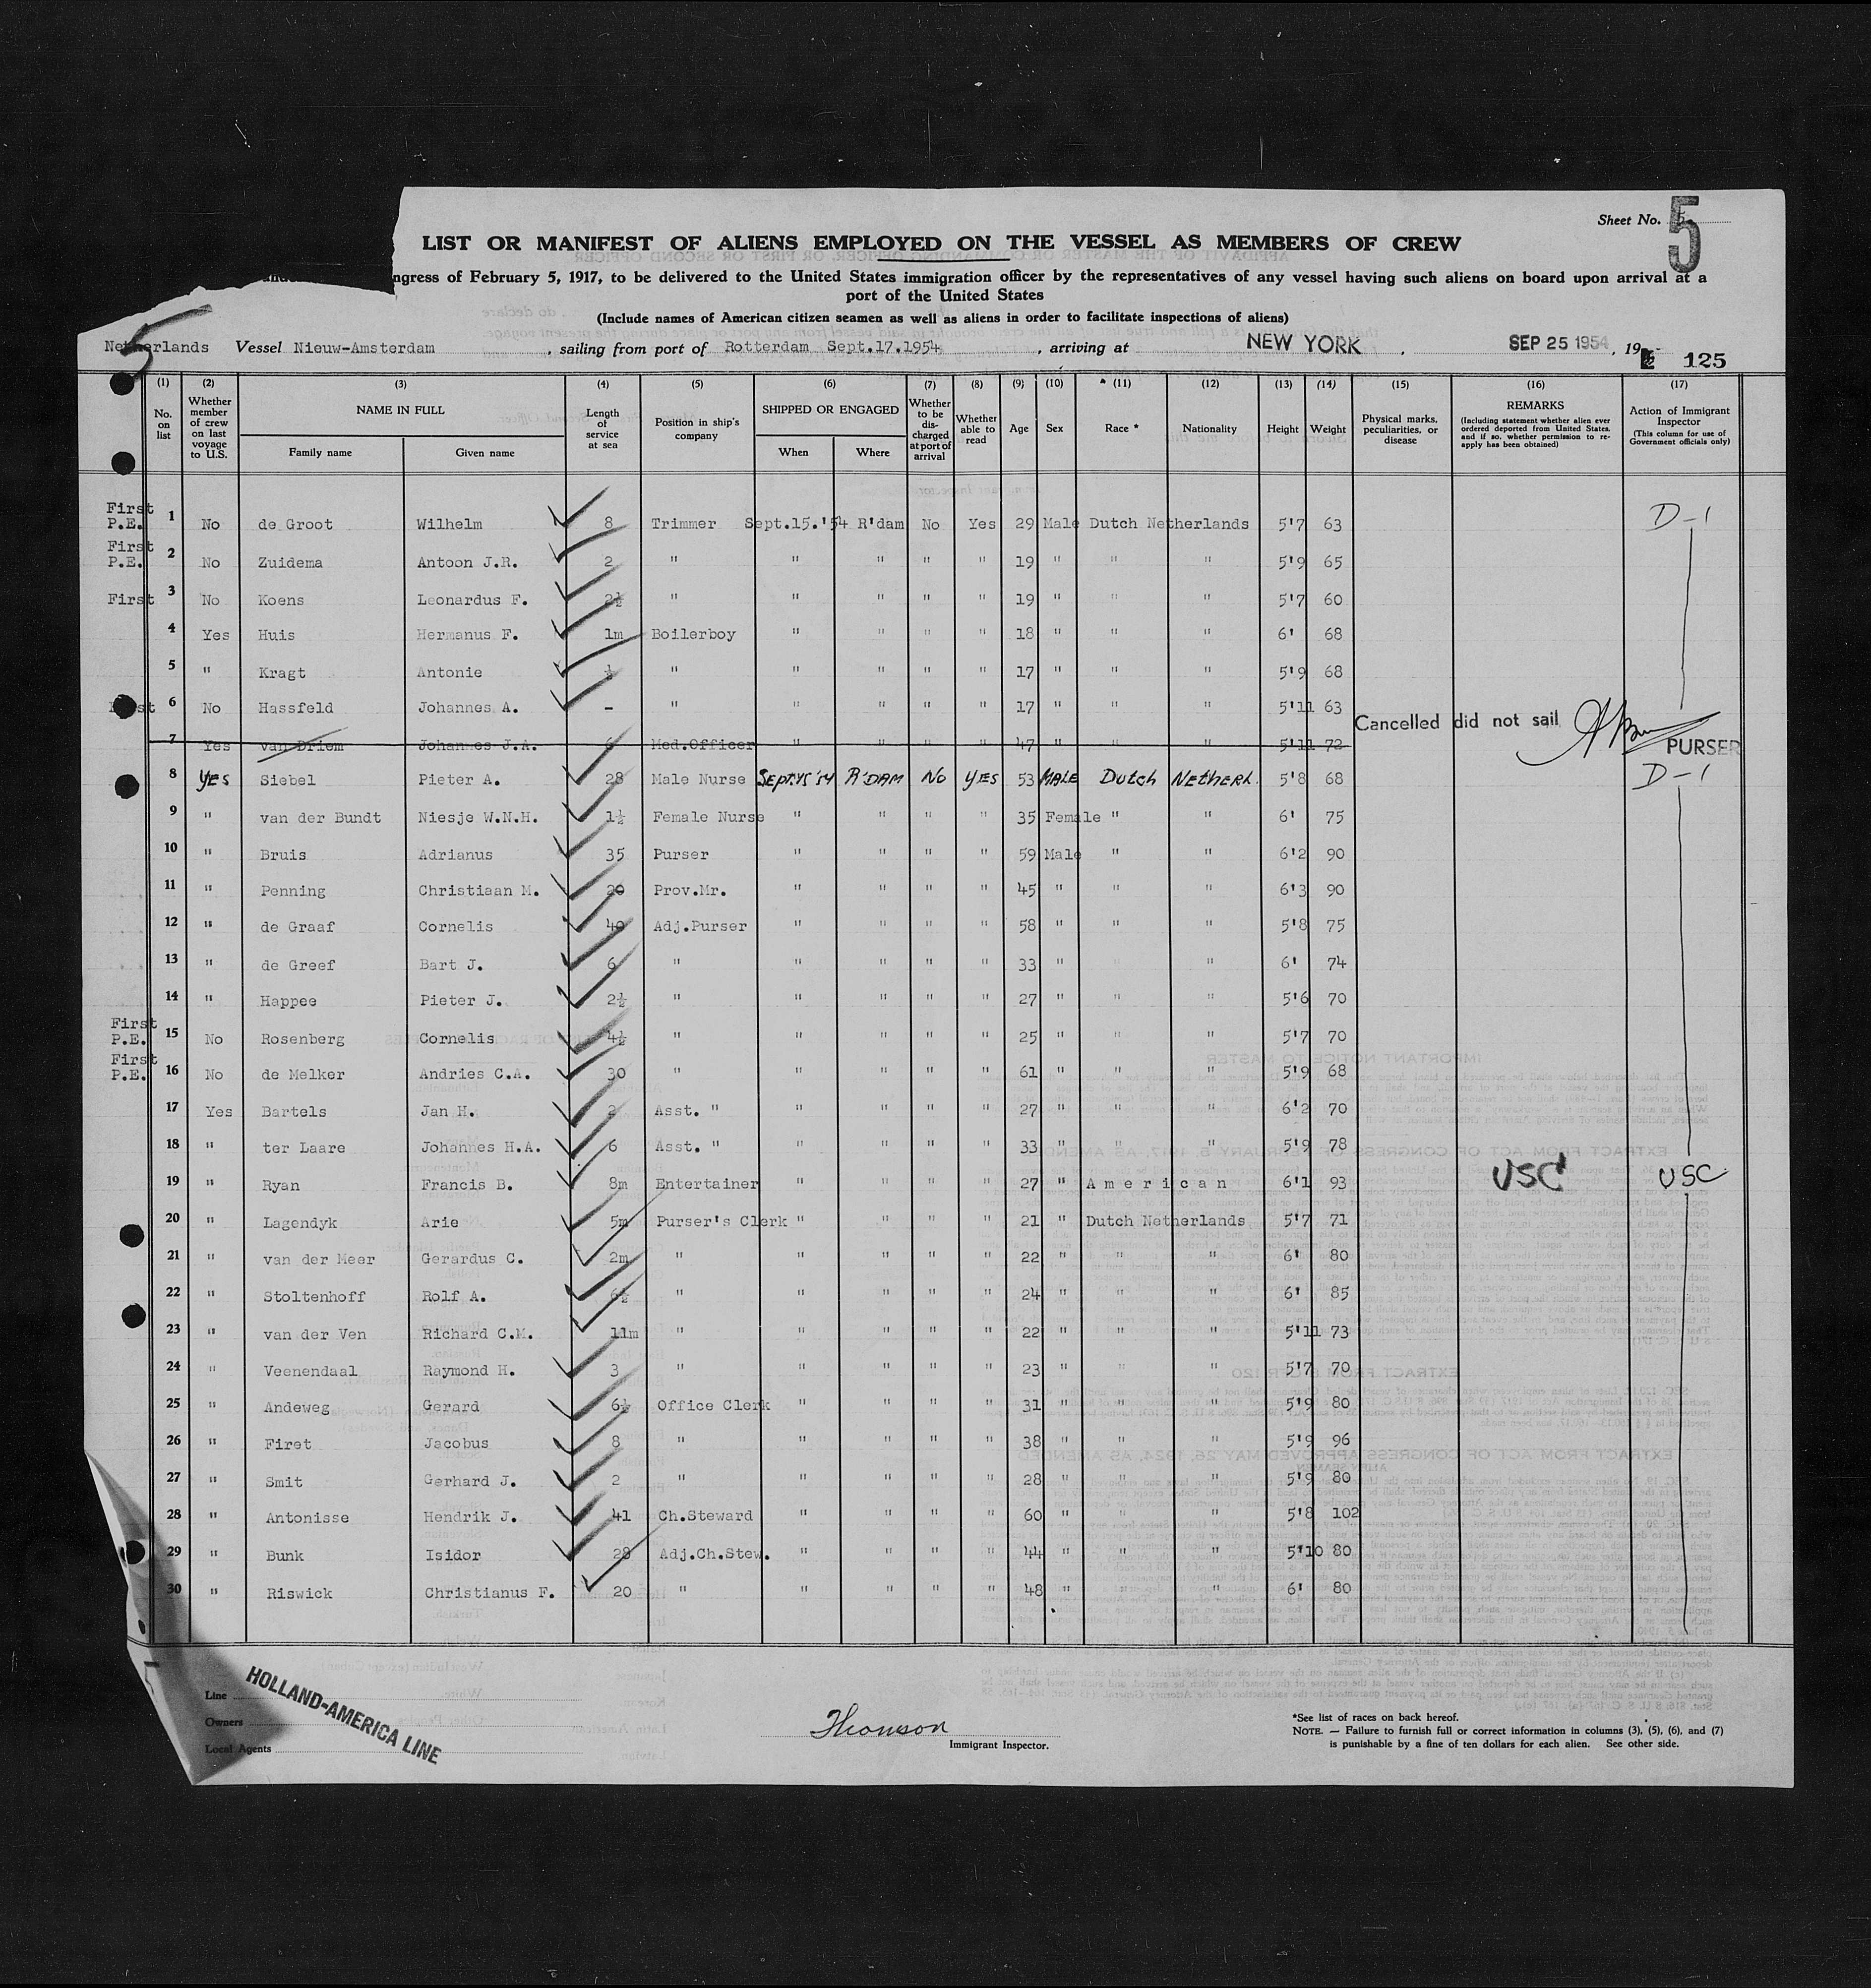 Sheet No. 5
5
LIST OR MANIFEST OF ALIENS EMPLOYED ON THE VESSEL AS MEMBERS OF CREW
ngress of February 5, 1917, to be delivered to the United States immigration officer by the representatives of any vessel having such aliens on board upon arrival at a
port of the United States
(Include names of American citizen seamen as well as aliens in order to facilitate inspections of aliens)
Netherlands Vessel Nieuw-Amsterdam, sailing from port of Rotterdam Sept.17.1954, arriving at NEW YORK, SEP 25 1954, 19 125
(1) (2) (3) (4) (5) (6) (7) (8) (9) (10) (11) (12) (13) (14) (15) (16) (17)
No. on list Whether member of crew on last voyage to U.S. NAME IN FULL Family name Given name Length of service at sea Position in ship's company SHIPPED OR ENGAGED When Where Whether to be discharged at port of arrival Whether able to read Age Sex Race * Nationality Height Weight Physical marks, peculiarities, or disease REMARKS (Including statement whether alien ever ordered deported from United States, and if so, whether permission to reapply has been obtained) Action of Immigrant Inspector (This column for use of Government officials only)
First P.E. 1 No de Groot Wilhelm 8 Trimmer Sept.15.'54 R'dam No Yes 29 Male Dutch Netherlands 5'7 63 D-1
First P.E. 2 No Zuidema Antoon J.R. 2 " " " " " 19 " " " 5'9 65
First 3 No Koens Leonardus F. 2½ " " " " " 19 " " " 5'7 60
4 Yes Huis Hermanus F. 1m Boilerboy " " " " 18 " " " 6' 68
5 " Kragt Antonie ½ " " " " " 17 " " " 5'9 68
6 No Hassfeld Johannes A. - " " " " " 17 " " " 5'11 63
Cancelled did not sail
7 Yes van Driem Johannes J.A. 6 Med.Officer " " " " 47 " " " 5'11 72 PURSER
8 YES Siebel Pieter A. 28 Male Nurse SEPT.15'54 R'DAM NO YES 53 MALE Dutch NETHERL. 5'8 68 D-1
9 " van der Bundt Niesje W.N.H. 1½ Female Nurse " " " " 35 Female " " 6' 75
10 " Bruis Adrianus 35 Purser " " " " 59 Male " " 6'2 90
11 " Penning Christiaan M. 20 Prov.Mr. " " " " 45 " " " 6'3 90
12 " de Graaf Cornelis 40 Adj.Purser " " " " 58 " " " 5'8 75
13 " de Greef Bart J. 6 " " " " " 33 " " " 6' 74
14 " Happee Pieter J. 2½ " " " " " 27 " " " 5'6 70
First P.E. 15 No Rosenberg Cornelis 4½ " " " " " 25 " " " 5'7 70
First P.E. 16 No de Melker Andries C.A. 30 " " " " " 61 " " " 5'9 68
17 Yes Bartels Jan H. 2 Asst. " " " " " 27 " " " 6'2 70
18 " ter Laare Johannes H.A. 6 Asst. " " " " " 33 " " " 5'9 78
19 " Ryan Francis B. 8m Entertainer " " " " 27 " American 6'1 93 USC USC
20 " Lagendyk Arie 5m Purser's Clerk " " " " 21 " Dutch Netherlands 5'7 71
21 " van der Meer Gerardus C. 2m " " " " " 22 " " " 6' 80
22 " Stoltenhoff Rolf A. 6½ " " " " " 24 " " " 6' 85
23 " van der Ven Richard C.M. 11m " " " " " 22 " " " 5'11 73
24 " Veenendaal Raymond H. 3 " " " " " 23 " " " 5'7 70
25 " Andeweg Gerard 6½ Office Clerk " " " " 31 " " " 5'9 80
26 " Firet Jacobus 8 " " " " " 38 " " " 5'9 96
27 " Smit Gerhard J. 2 " " " " " 28 " " " 5'9 80
28 " Antonisse Hendrik J. 41 Ch.Steward " " " " 60 " " " 5'8 102
29 " Bunk Isidor 28 Adj.Ch.Stew. " " " " 44 " " " 5'10 80
30 " Riswick Christianus F. 20 " " " " " 48 " " " 6' 80
Line
Owners
Local Agents
HOLLAND-AMERICA LINE
Thomson
Immigrant Inspector.
*See list of races on back hereof.
NOTE. — Failure to furnish full or correct information in columns (3), (5), (6), and (7)
is punishable by a fine of ten dollars for each alien. See other side.